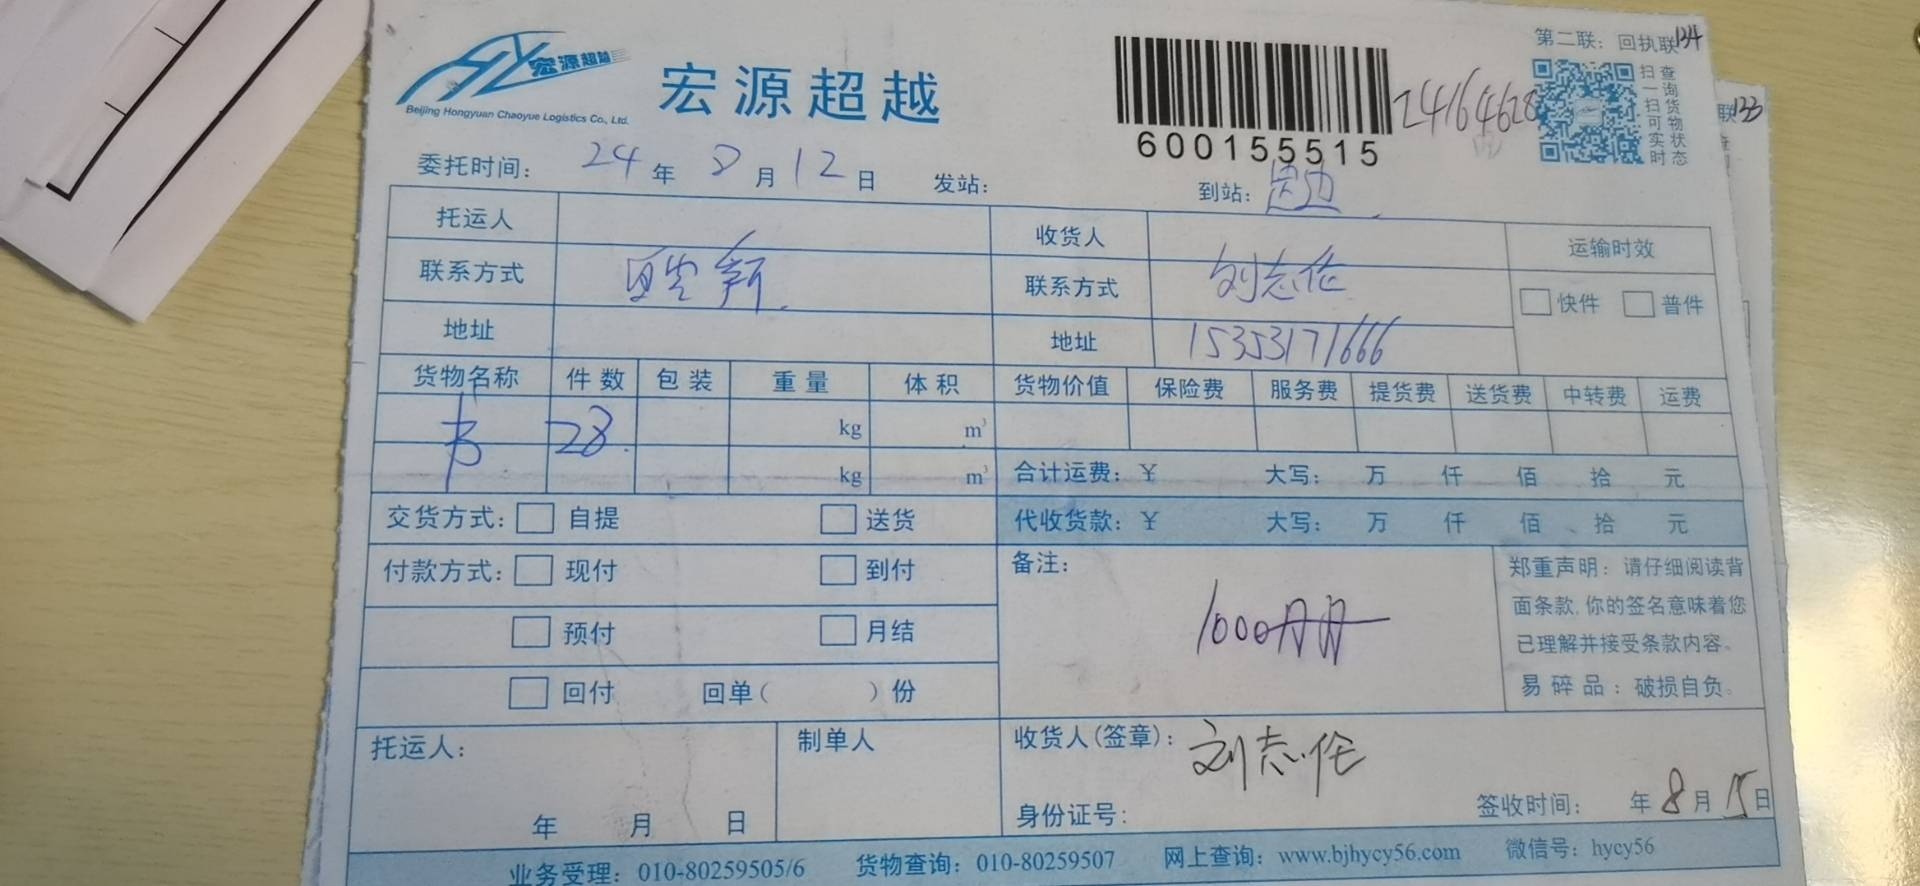 宏源超越
Beijing Hongyuan Chaoyue Logistics Co., Ltd.
宏源超越
600155515
24164628
第二联：回执联 134
扫一扫可实时
查询货物状态
联 133
委托时间： 24 年 8 月 12 日 发站： 到站： 周边
托运人 收货人 运输时效
联系方式 新 联系方式 刘志伦 快件 普件
地址 地址 15353171666
货物名称 件数 包装 重量 体积 货物价值 保险费 服务费 提货费 送货费 中转费 运费
书 28 kg m³
kg m³ 合计运费：￥ 大写： 万 仟 佰 拾 元
交货方式： 自提 送货 代收货款：￥ 大写： 万 仟 佰 拾 元
付款方式： 现付 到付 备注：
预付 月结 1000册
回付 回单（ ）份
郑重声明：请仔细阅读背
面条款,你的签名意味着您
已理解并接受条款内容。
易碎品：破损自负。
托运人： 制单人 收货人(签章)： 刘志伦
年 月 日 身份证号： 签收时间： 年 8 月 15 日
业务受理：010-80259505/6 货物查询：010-80259507 网上查询：www.bjhycy56.com 微信号：hycy56